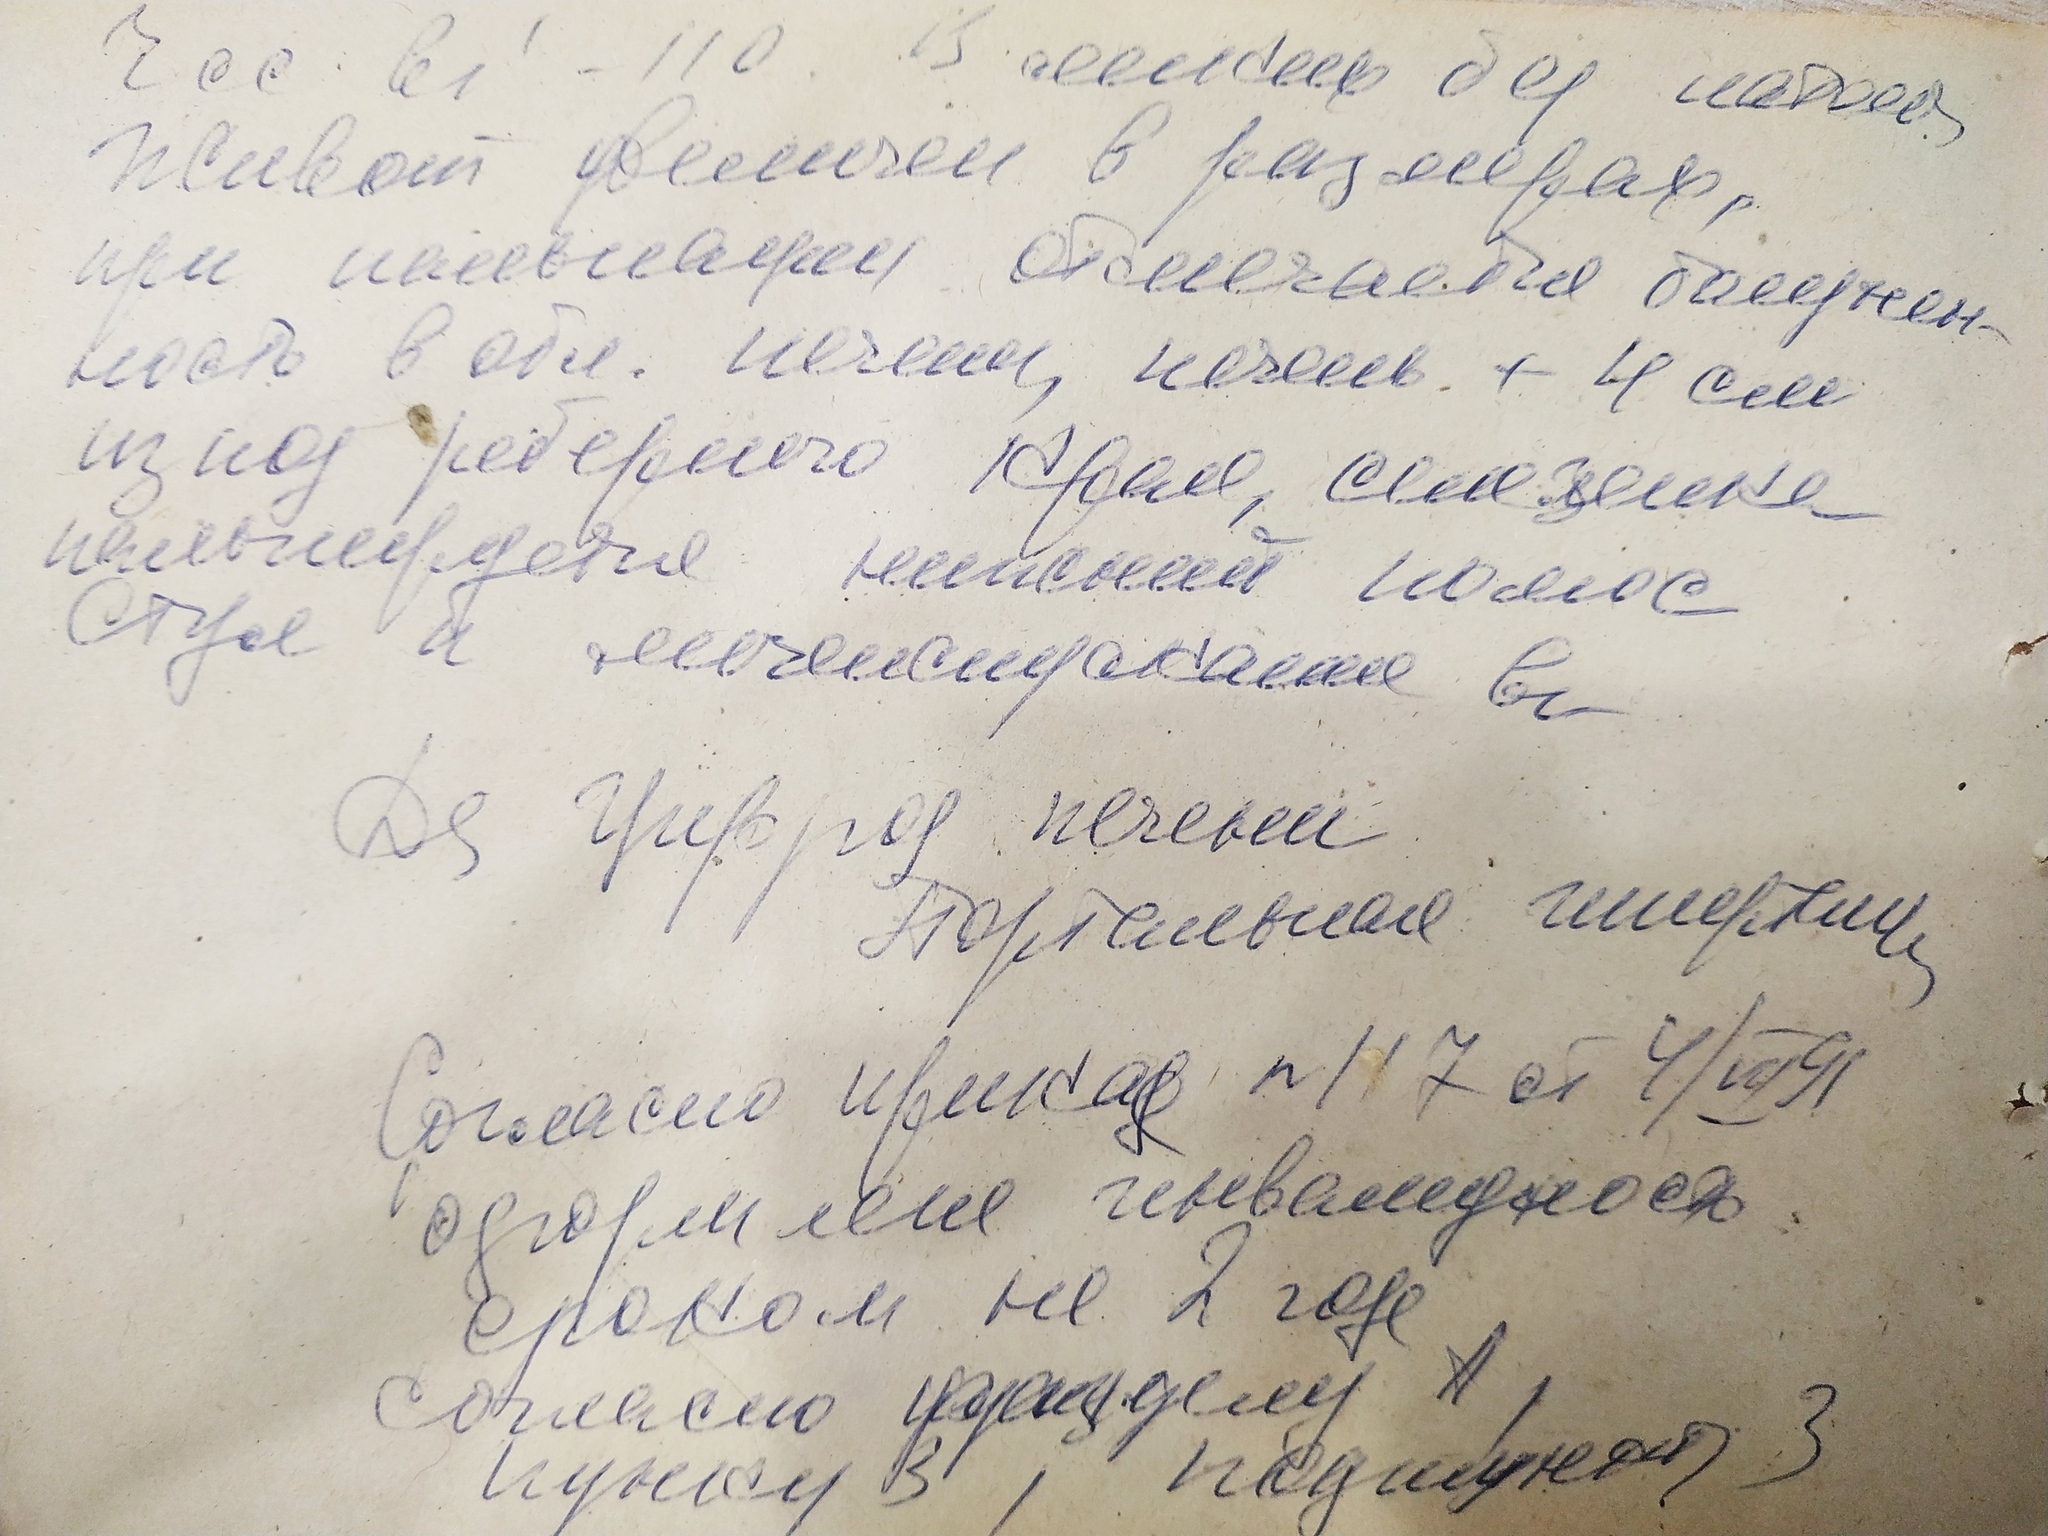 Чсс в 1' - 110. В легких без патол
Живот увеличен в размерах,
при пальпации отмечается болезнен-
ность в обл. печени, печень + 4 см
из под реберного края, селезенка
пальпируется нижний полюс
Стул и мочеиспускание
Дз Цирроз печени
Портальная гипертенз
Согласно приказ № 117 от 4/VII 91
оформлена инвалидность
сроком на 2 года
согласно разделу
пункту 3, подпункту 3